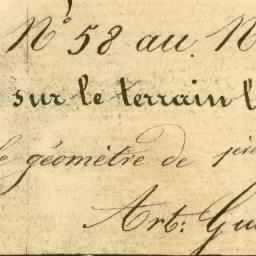 N° 58 au N
sur le terrain l
le géomètre de
Art: Gu